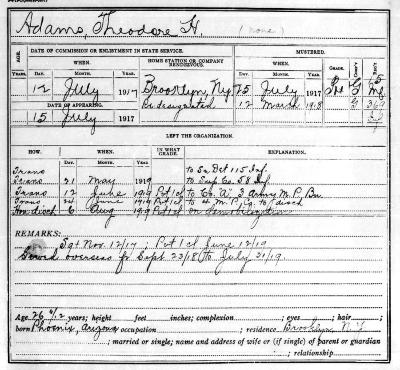 Adams, Theodore H.
1 none
AGE. DATE OF COMMISSION OR ENLISTMENT IN STATE SERVICE. HOME STATION OR COMPANY RENDEZVOUS. MUSTERED. GRADE. COMP'Y REG'T
WHEN. WHEN.
YEARS. DAY. MONTH. YEAR DAY. MONTH. YEAR
12 July 1917 Brooklyn, Ny 25 July 1917 G
DATE OF APPEARING. Redesignated 12 March 1918
15 July 1917
LEFT THE ORGANIZATION.
HOW. WHEN. IN WHAT GRADE. EXPLANATION.
DAY. MONTH. YEAR
Trans to Sn Det 115 Inf
Trans 21 May 1919 to Sup Co. 58 Inf
Trans 12 June 1919 Pvt 1cl to Co. A 3 Army M.P. Bn
Trans 24 June 1919 Pvt 1cl to 4 M.P. Co. to disch
Hon disch 6 Aug 1919 Pvt 1cl on Demobilization
REMARKS:
Sgt Nov. 12/17; Pvt 1cl June 12/19
Served overseas fr Sept 23/18 to July 31/19.
Age 26 6/12 years; height feet inches; complexion ; eyes ; hair ;
born Phoenix, Arizona occupation ; residence Brooklyn, N.Y.
; married or single; name and address of wife or (if single) of parent or guardian
; relationship